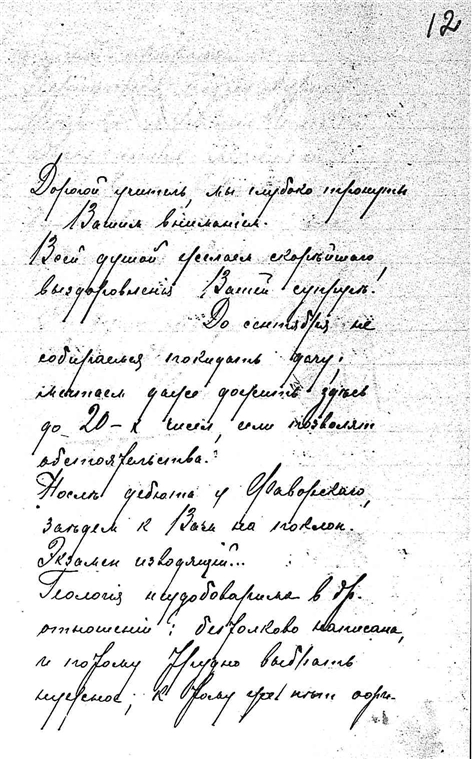 12
Дорогой учитель, мы глубоко тронуты
Вашим вниманiем.
Всей душой желаем скорѣйшаго
выздоровленiя Вашей супругѣ!
До сентября не
собираемся покидать дачу,
мечтаем даже дожить здѣсь
до 20-х чисел, если позволят
обстоятельства.
Послѣ дебюта у Фаворскаго,
заѣдем к Вам на поклон.
Экзамен изводящiй...
Геологiя неудобоварима в др.
отношенiи: безтолково написана,
и потому трудно выбрать
нужное; к тому же